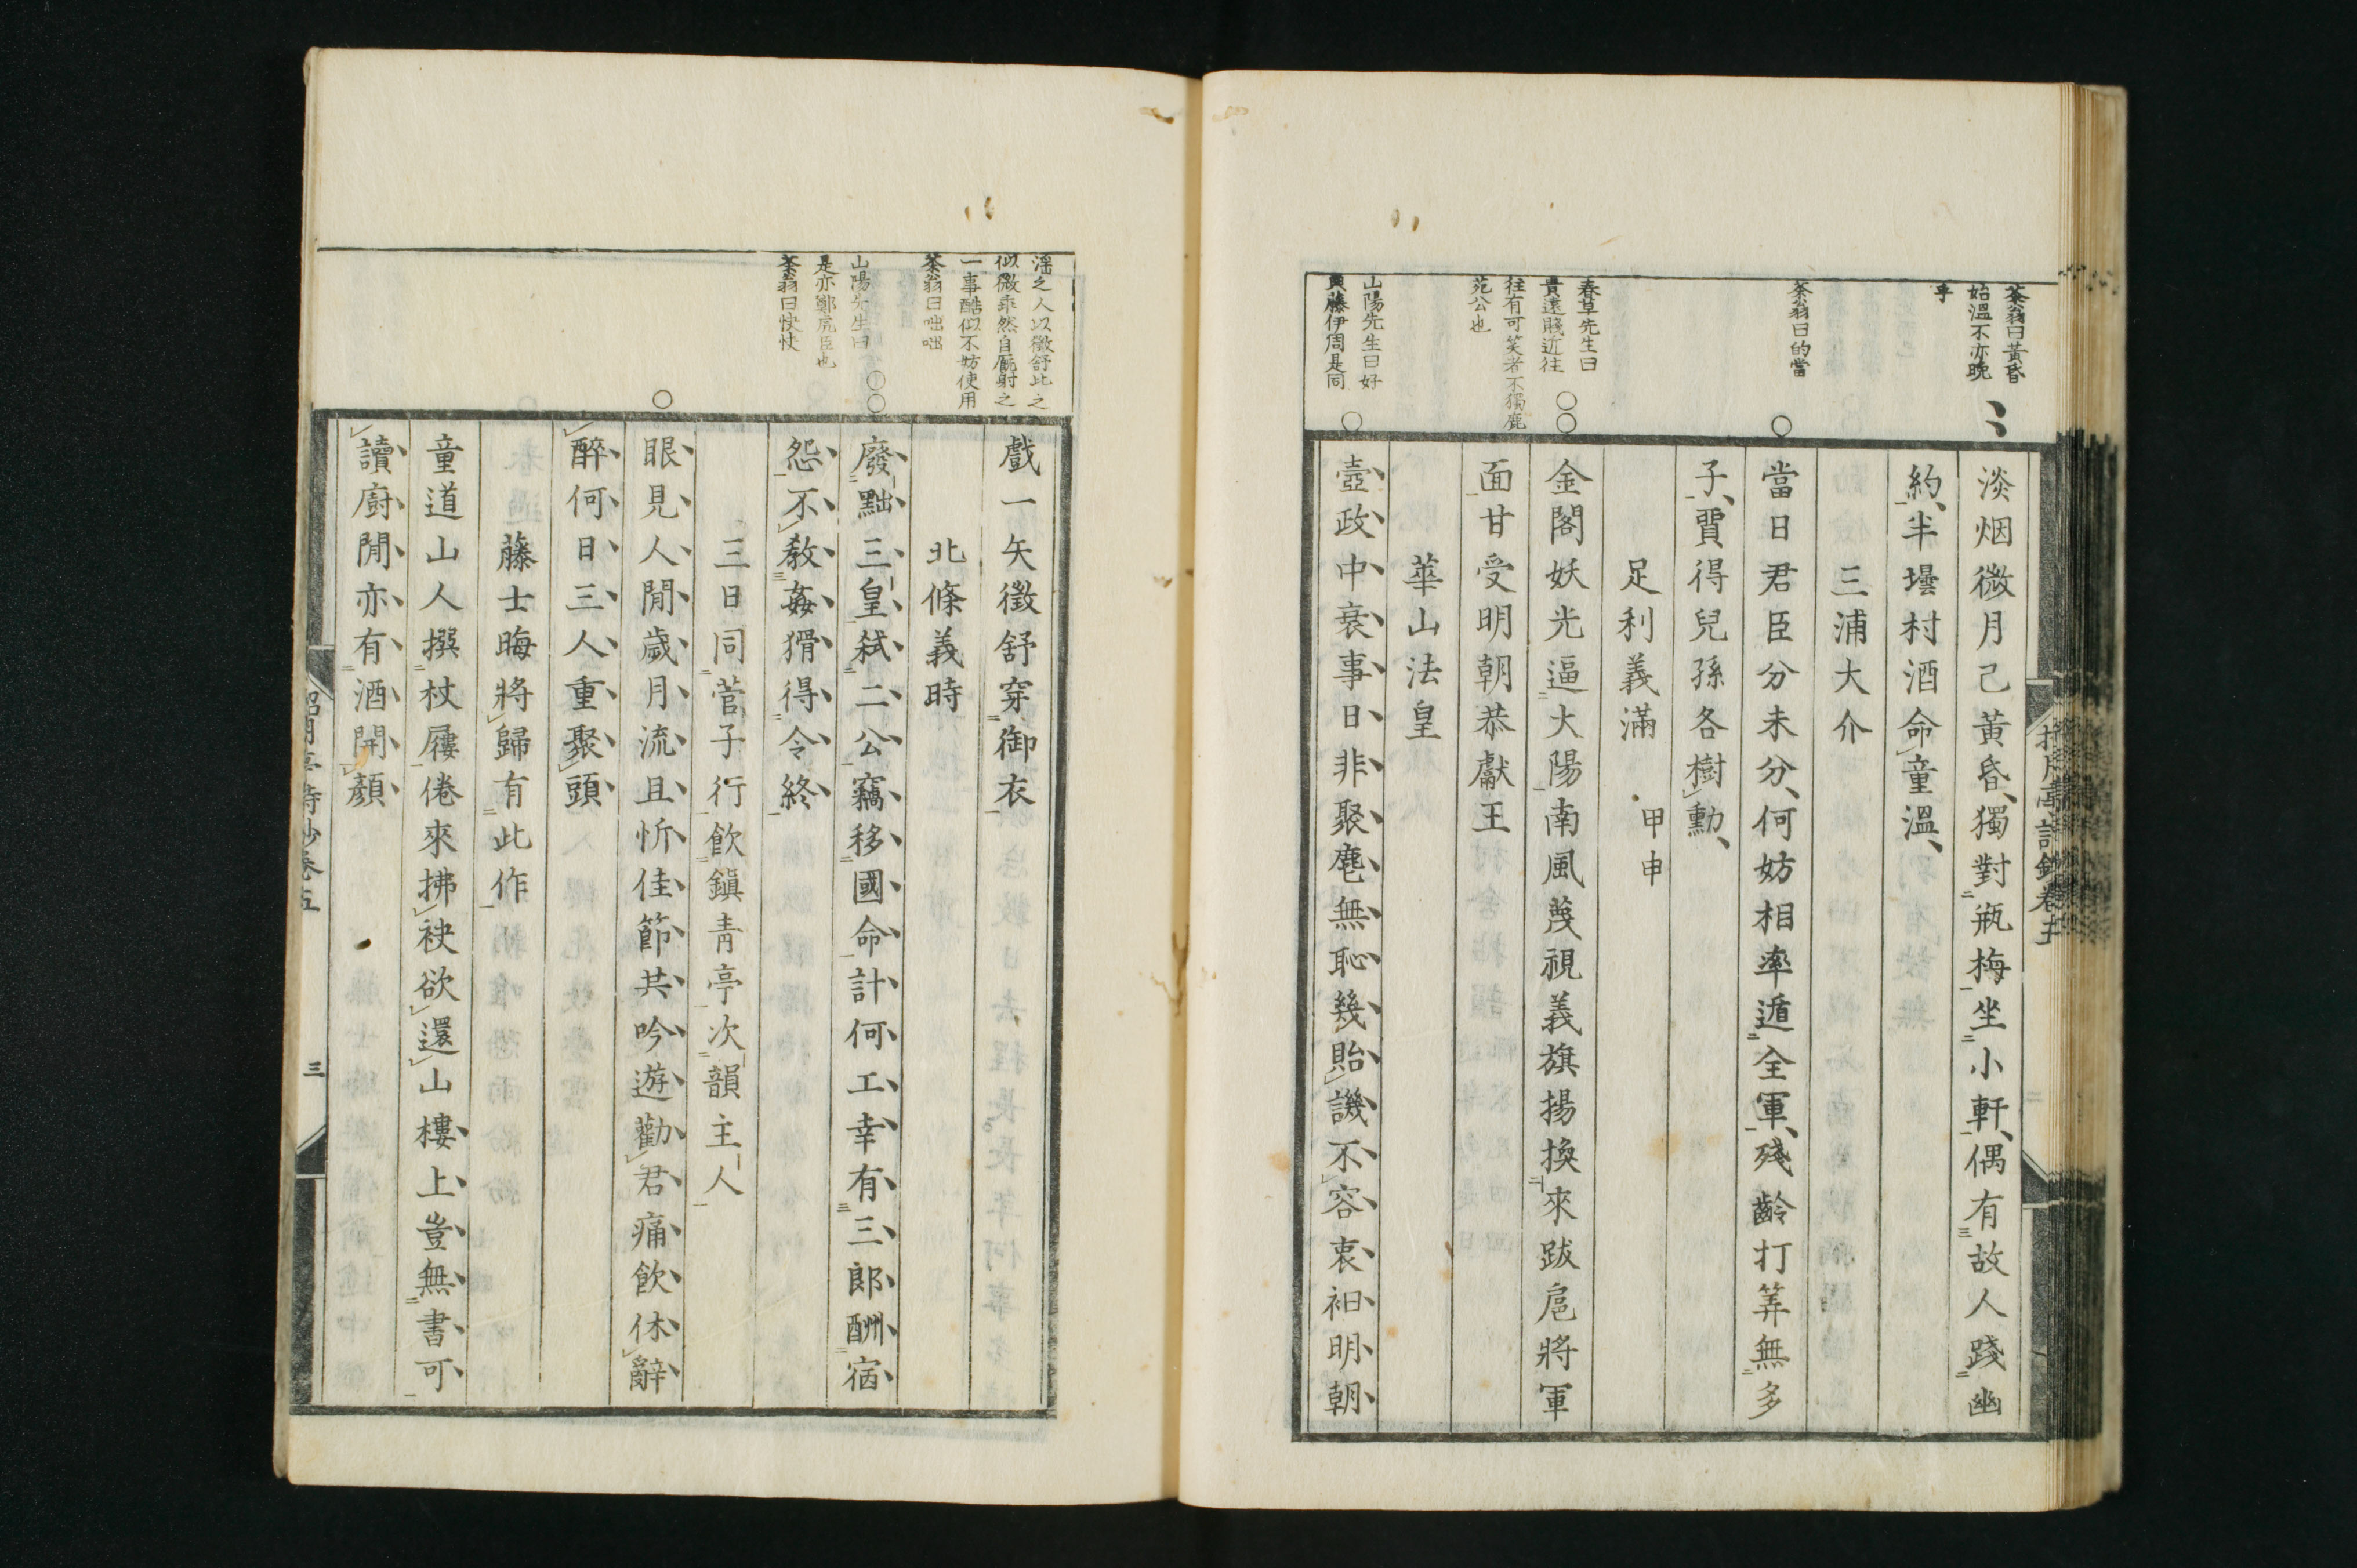 茶翁曰黃昏
始溫不亦晚
乎
茶翁曰的當
春草先生曰
貴遠賤近往
往有可笑者不獨鹿
苑公也
山陽先生曰好
貫藤伊周是同
淡烟微月已黃昏獨對瓶梅坐小軒偶有故人踐幽
約半壜村酒命童溫
三浦大介
當日君臣分未分何妨相率遁全軍殘齡打筭無多
子買得兒孫各樹勳
足利義滿 甲申
金閣妖光逼大陽南風蔑視義旗揚換來跋扈將軍
面甘受明朝恭獻王
華山法皇
壼政中衰事日非聚麀無恥幾貽譏不容衷衵明朝
淫之人以徵舒比之
似微乖然自厩射之
一事酷似不妨使用
茶翁曰咄咄
山陽先生曰
是亦鄭虎臣也
茶翁曰快快
戲一矢徵舒穿御衣
北條義時
廢黜三皇弑二公竊移國命計何工幸有三郎酬宿
怨不敎姦猾得令終
三日同菅子行飲鎭青亭次韻主人
眼見人間歲月流且忻佳節共吟遊勸君痛飲休辭
醉何日三人重聚頭
藤士晦將歸有此作
童道山人撰杖屨倦來拂袂欲還山樓上豈無書可
讀廚閒亦有酒開顏
三